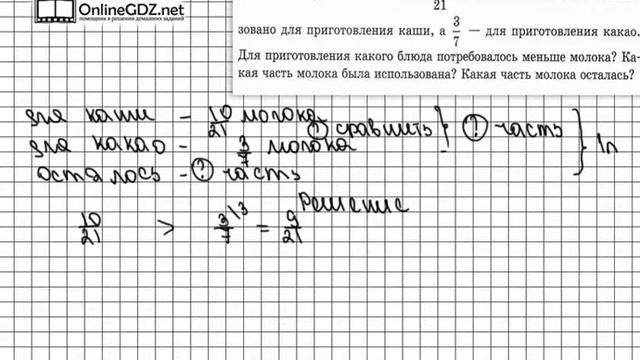 OnlineGDZ.net
помощник в решении домашних заданий
21
зовано для приготовления каши, а 3/7 — для приготовления какао.
Для приготовления какого блюда потребовалось меньше молока? Ка-
кая часть молока была использована? Какая часть молока осталась?
для каши - 10/21 молока
для какао - 3/7 молока
? сравнить
? часть
1л
осталось - ? часть
Решение
10/21 > 3/7 \3 = 9/21